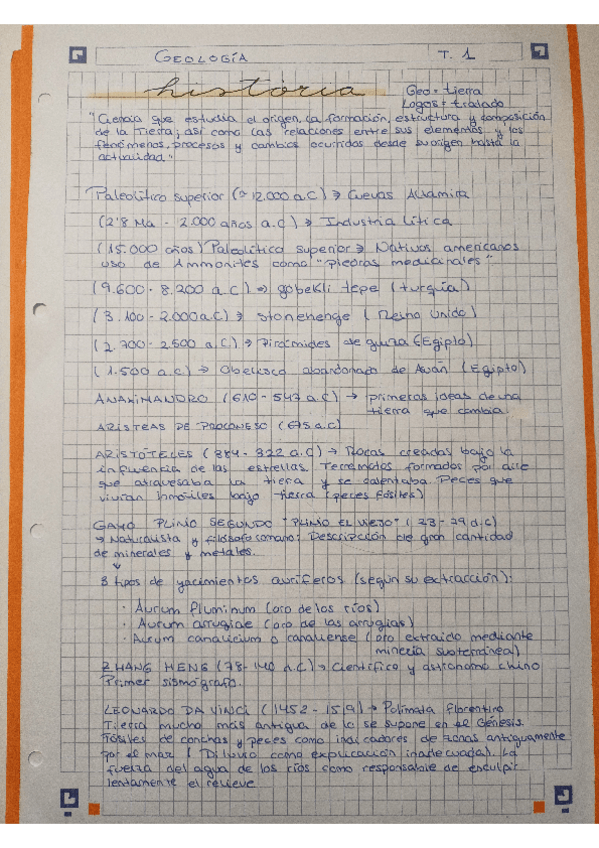 GEOLOGÍA T. 1
história
Geo = tierra
Logos = tratado
"Ciencia que estudia el origen, la formación, estructura y composición
de la Tierra; así como las relaciones entre sus elementos y los
fenómenos, procesos y cambios ocurridos desde su origen hasta la
actualidad."
Paleolítico superior (≈ 12.000 a.C) → Cuevas Altamira
(2'8 Ma - 2.000 años a.C) → Industria lítica
(15.000 años) Paleolítico superior → Nativos americanos
uso de Ammonites como "piedras medicinales"
(9.600 - 8.200 a.C) → gobekli tepe (turquía)
(3.100 - 2.000 a.C) → Stonehenge (Reino Unido)
(2.700 - 2.500 a.C) → Pirámides de guiza (Egipto)
(1.500 a.C) → Obelisco abandonado de Asuán (Egipto)
ANAXIMANDRO (610 - 547 a.C) → primeras ideas de una
tierra que cambia.
ARISTEAS DE PROCONESO (675 a.C)
ARISTÓTELES (384 - 322 a.C) → Rocas creadas bajo la
influencia de las estrellas. Terremotos formados por aire
que atravesaba la tierra y se calentaba. Peces que
vivían inmóviles bajo tierra (peces fósiles)
GAYO PLINIO SEGUNDO "PLINIO EL VIEJO" (23 - 79 d.c)
→ Naturalista y filósofo romano: Descripción de gran cantidad
de minerales y metales.
3 tipos de yacimientos auríferos (según su extracción):
· Aurum fluminum (oro de los ríos)
· Aurum arrugiae (oro de las arrugias)
· Aurum canalicium o canaliense (oro extraido mediante
minería subterránea)
ZHANG HENG (78 - 140 d.C) → Científico y astronomo chino
Primer sismógrafo.
LEONARDO DA VINCI (1452 - 1519) → Polímata florentino
Tierra mucho más antigua de lo se supone en el Génesis.
Fósiles de conchas y peces como indicadores de zonas antiguamente
por el mar (Diluvio como explicación inadecuada). La
fuerza del agua de los ríos como responsable de esculpir
lentamente el relieve